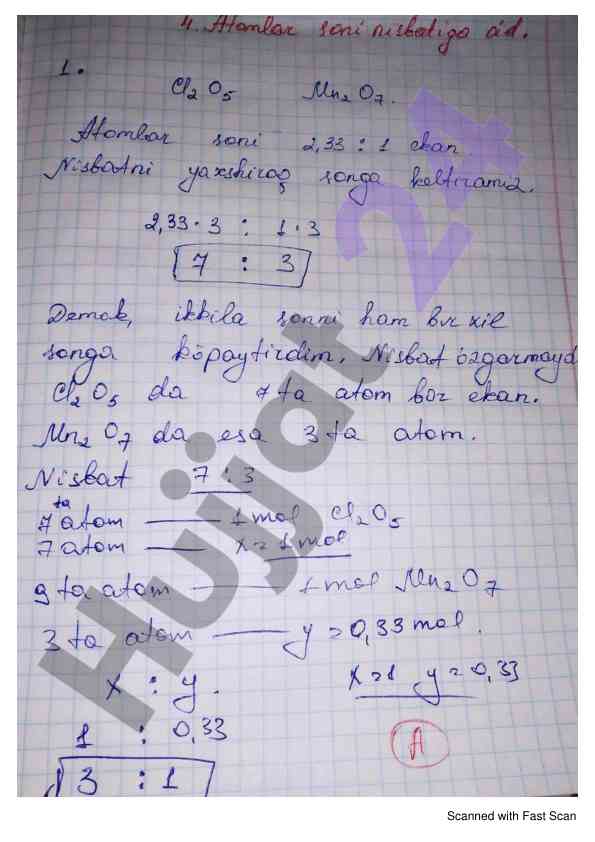 4. Atomlar soni nisbatiga oid.
1.
Cl2O5 Mn2O7.
Atomlar soni 2,33 : 1 ekan
Nisbatni yaxshiroq songa keltiramiz.
2,33 · 3 : 1 · 3
7 : 3
Demak, ikkila sonni ham bir xil
songa köpaytirdim. Nisbat özgarmayd
Cl2O5 da 7 ta atom bor ekan.
Mn2O7 da esa 3 ta atom.
Nisbat 7 : 3
7 ta atom — 1 mol Cl2O5
7 atom — x = 1 mol
9 ta atom — 1 mol Mn2O7
3 ta atom — y = 0,33 mol.
x : y. x = 1 y = 0,33
1 : 0,33
A
3 : 1
Hujjat 24
Scanned with Fast Scan